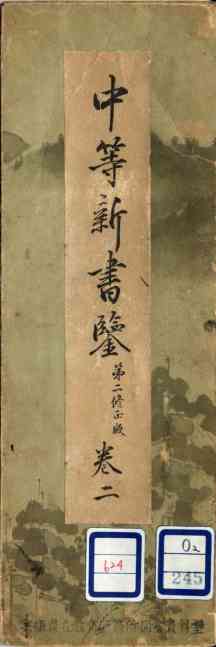 中等新書鑒
第二修正版
卷二
624
O2
245